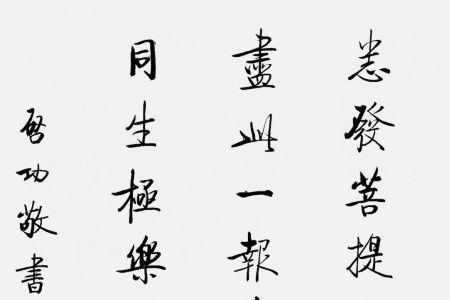 悉發菩提
盡此一報
同生極樂
啓功敬書